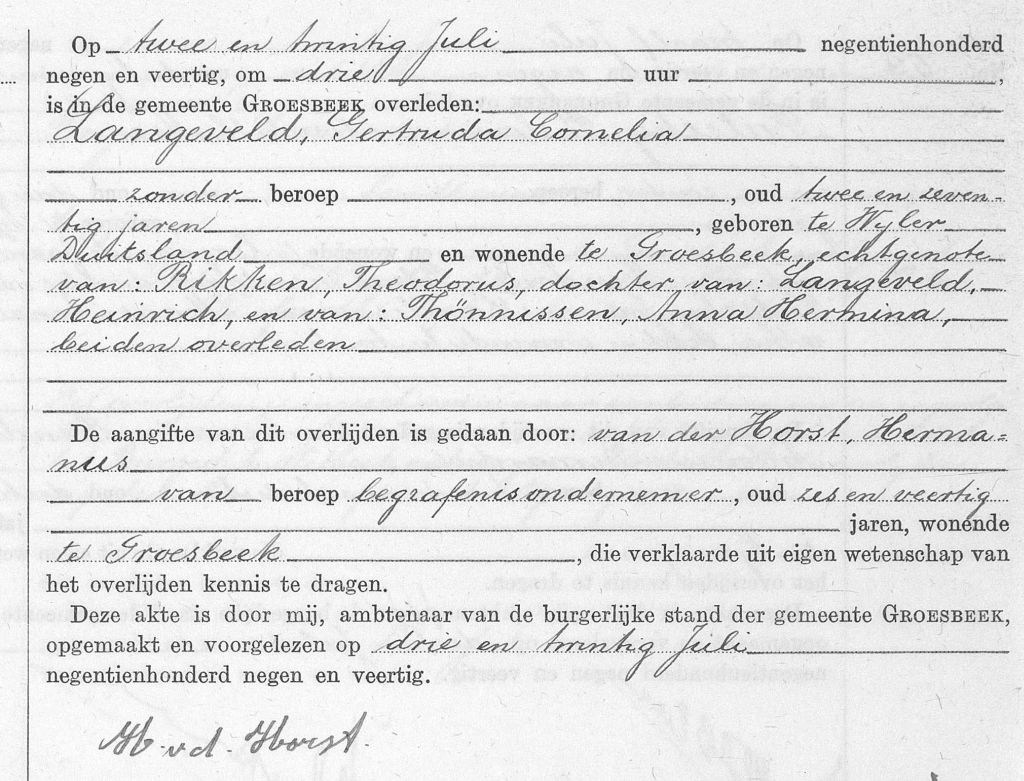 Op twee en twintig Juli negentienhonderd
negen en veertig, om drie uur ,
is in de gemeente GROESBEEK overleden:
Langeveld, Gertruda Cornelia
zonder beroep , oud twee en zeven-
tig jaren , geboren te Wyler
Duitsland en wonende te Groesbeek, echtgenote
van: Rikken, Theodorus, dochter van: Langeveld,
Heinrich, en van: Thönnissen, Anna Hermina,
beiden overleden
De aangifte van dit overlijden is gedaan door: van der Horst, Herma=
nus
van beroep begrafenisondernemer, oud zes en veertig
jaren, wonende
te Groesbeek , die verklaarde uit eigen wetenschap van
het overlijden kennis te dragen.
Deze akte is door mij, ambtenaar van de burgerlijke stand der gemeente GROESBEEK,
opgemaakt en voorgelezen op drie en twintig Juli
negentienhonderd negen en veertig.
H. v d. Horst.